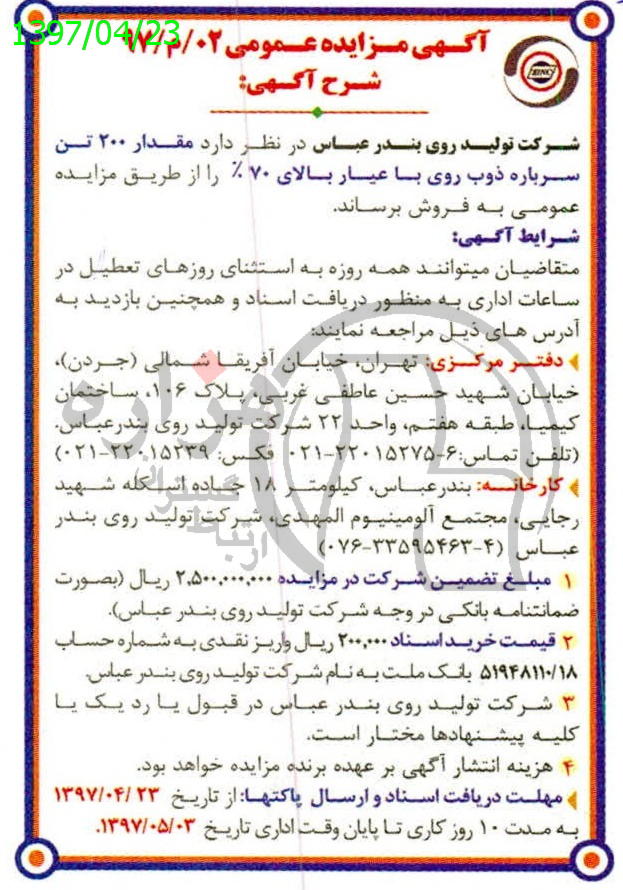 1397/04/23
آگهی مزایده عمومی ۹۷/م/۰۲
شرح آگهی:
ZINC
شرکت تولید روی بندر عباس در نظر دارد مقدار ۲۰۰ تن
سرباره ذوب روی با عیار بالای ۷۰ ٪ را از طریق مزایده
عمومی به فروش برساند.
شرایط آگهی:
متقاضیان میتوانند همه روزه به استثنای روزهای تعطیل در
ساعات اداری به منظور دریافت اسناد و همچنین بازدید به
آدرس های ذیل مراجعه نمایند:
دفتر مرکزی: تهران، خیابان آفریقا شمالی (جردن)،
خیابان شهید حسین عاطفی غربی، پلاک ۱۰۶، ساختمان
کیمیا، طبقه هفتم، واحد ۲۲ شرکت تولید روی بندرعباس.
(تلفن تماس:۶-۲۲۰۱۵۲۷۵-۰۲۱ فکس: ۲۲۰۱۵۲۳۹-۰۲۱)
کارخانه: بندرعباس، کیلومتر ۱۸ جاده اسکله شهید
رجایی، مجتمع آلومینیوم المهدی، شرکت تولید روی بندر
عباس (۴-۳۳۵۹۵۴۶۳-۰۷۶)
۱ مبلغ تضمین شرکت در مزایده ۲,۵۰۰,۰۰۰,۰۰۰ ریال (بصورت
ضمانتنامه بانکی در وجه شرکت تولید روی بندر عباس).
۲ قیمت خرید اسناد ۲۰۰,۰۰۰ ریال واریز نقدی به شماره حساب
۵۱۹۴۸۱۱۰/۱۸ بانک ملت به نام شرکت تولید روی بندر عباس.
۳ شرکت تولید روی بندر عباس در قبول یا رد یک یا
کلیه پیشنهادها مختار است.
۴ هزینه انتشار آگهی بر عهده برنده مزایده خواهد بود.
مهلت دریافت اسناد و ارسال پاکتها: از تاریخ ۱۳۹۷/۰۴/ ۲۳
به مدت ۱۰ روز کاری تا پایان وقت اداری تاریخ ۱۳۹۷/۰۵/۰۳.
هزاره